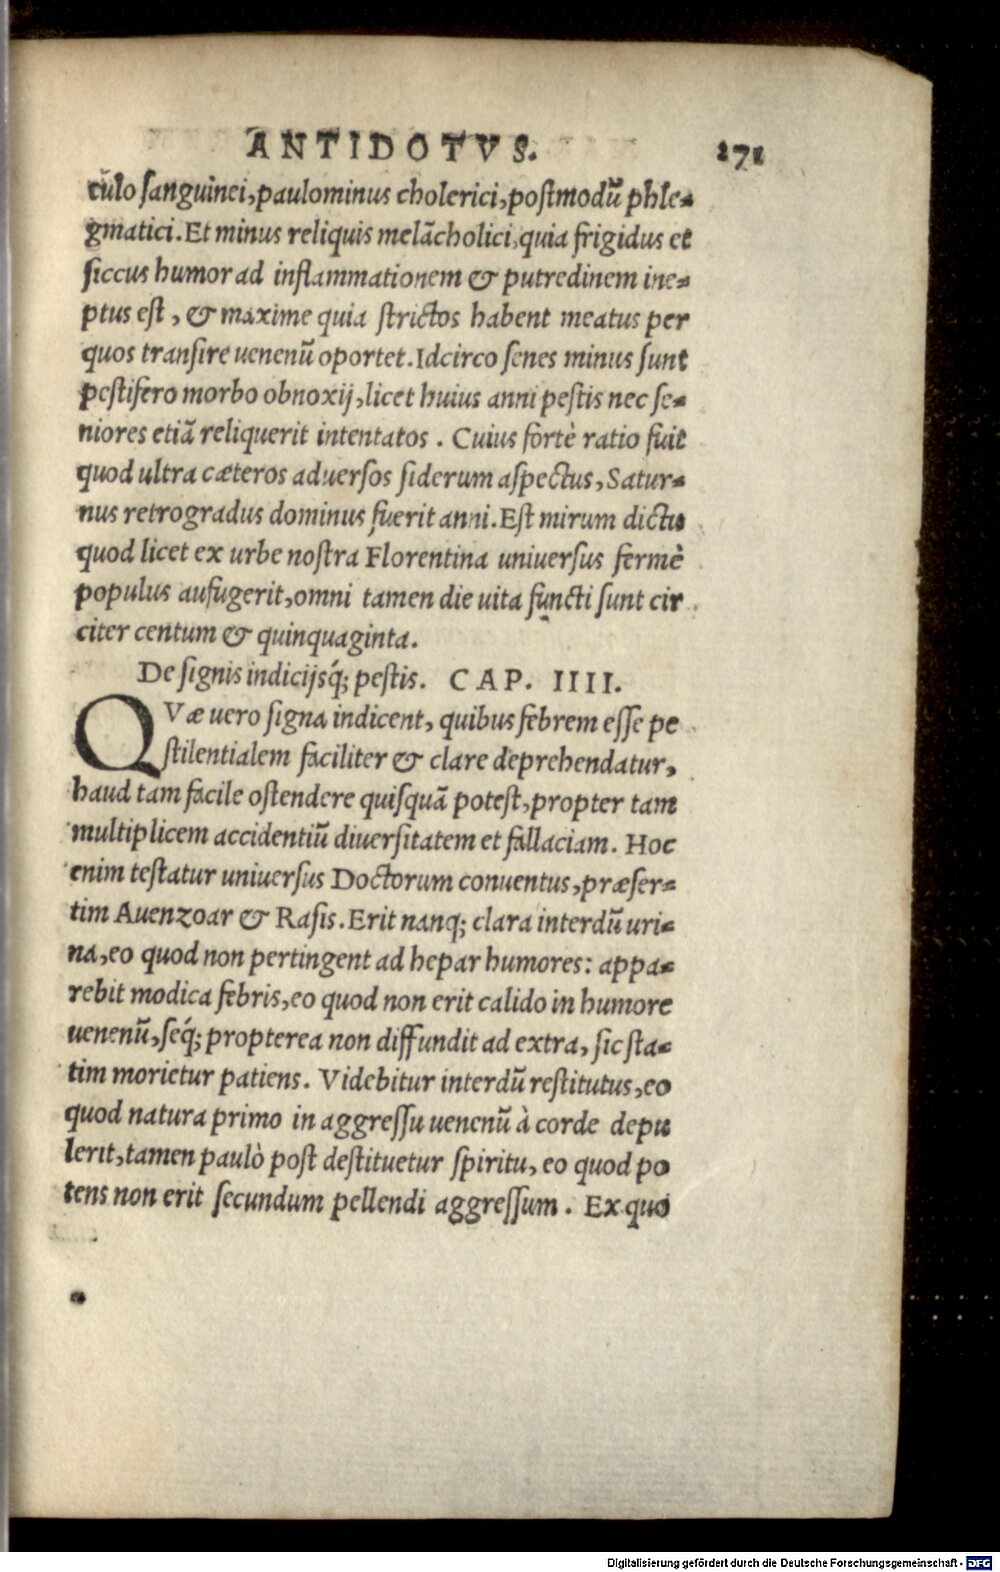 ANTIDOTVS. 271
culo sanguinei, paulominus cholerici, postmodũ phle=
gmatici. Et minus reliquis melãcholici, quia frigidus et
siccus humor ad inflammationem & putredinem ine=
ptus est, & maxime quia strictos habent meatus per
quos transire uenenũ oportet. Idcirco senes minus sunt
pestifero morbo obnoxij, licet huius anni pestis nec se=
niores etiã reliquerit intentatos. Cuius fortè ratio fuit
quod ultra cæteros aduersos siderum aspectus, Satur=
nus retrogradus dominus fuerit anni. Est mirum dictu
quod licet ex urbe nostra Florentina uniuersus fermè
populus aufugerit, omni tamen die uita functi sunt cir
citer centum & quinquaginta.
De signis indicijsq́; pestis. CAP. IIII.
QVæ uero signa indicent, quibus febrem esse pe
stilentialem faciliter & clare deprehendatur,
haud tam facile ostendere quisquã potest, propter tam
multiplicem accidentiũ diuersitatem et fallaciam. Hoc
enim testatur uniuersus Doctorum conuentus, præser=
tim Auenzoar & Rasis. Erit nanq; clara interdũ uri=
na, eo quod non pertingent ad hepar humores: appa=
rebit modica febris, eo quod non erit calido in humore
uenenũ, seq́; propterea non diffundit ad extra, sic sta=
tim morietur patiens. Videbitur interdũ restitutus, eo
quod natura primo in aggressu uenenũ à corde depu
lerit, tamen paulò post destituetur spiritu, eo quod po
tens non erit secundum pellendi aggressum. Ex quo
Digitalisierung gefördert durch die Deutsche Forschungsgemeinschaft - DFG